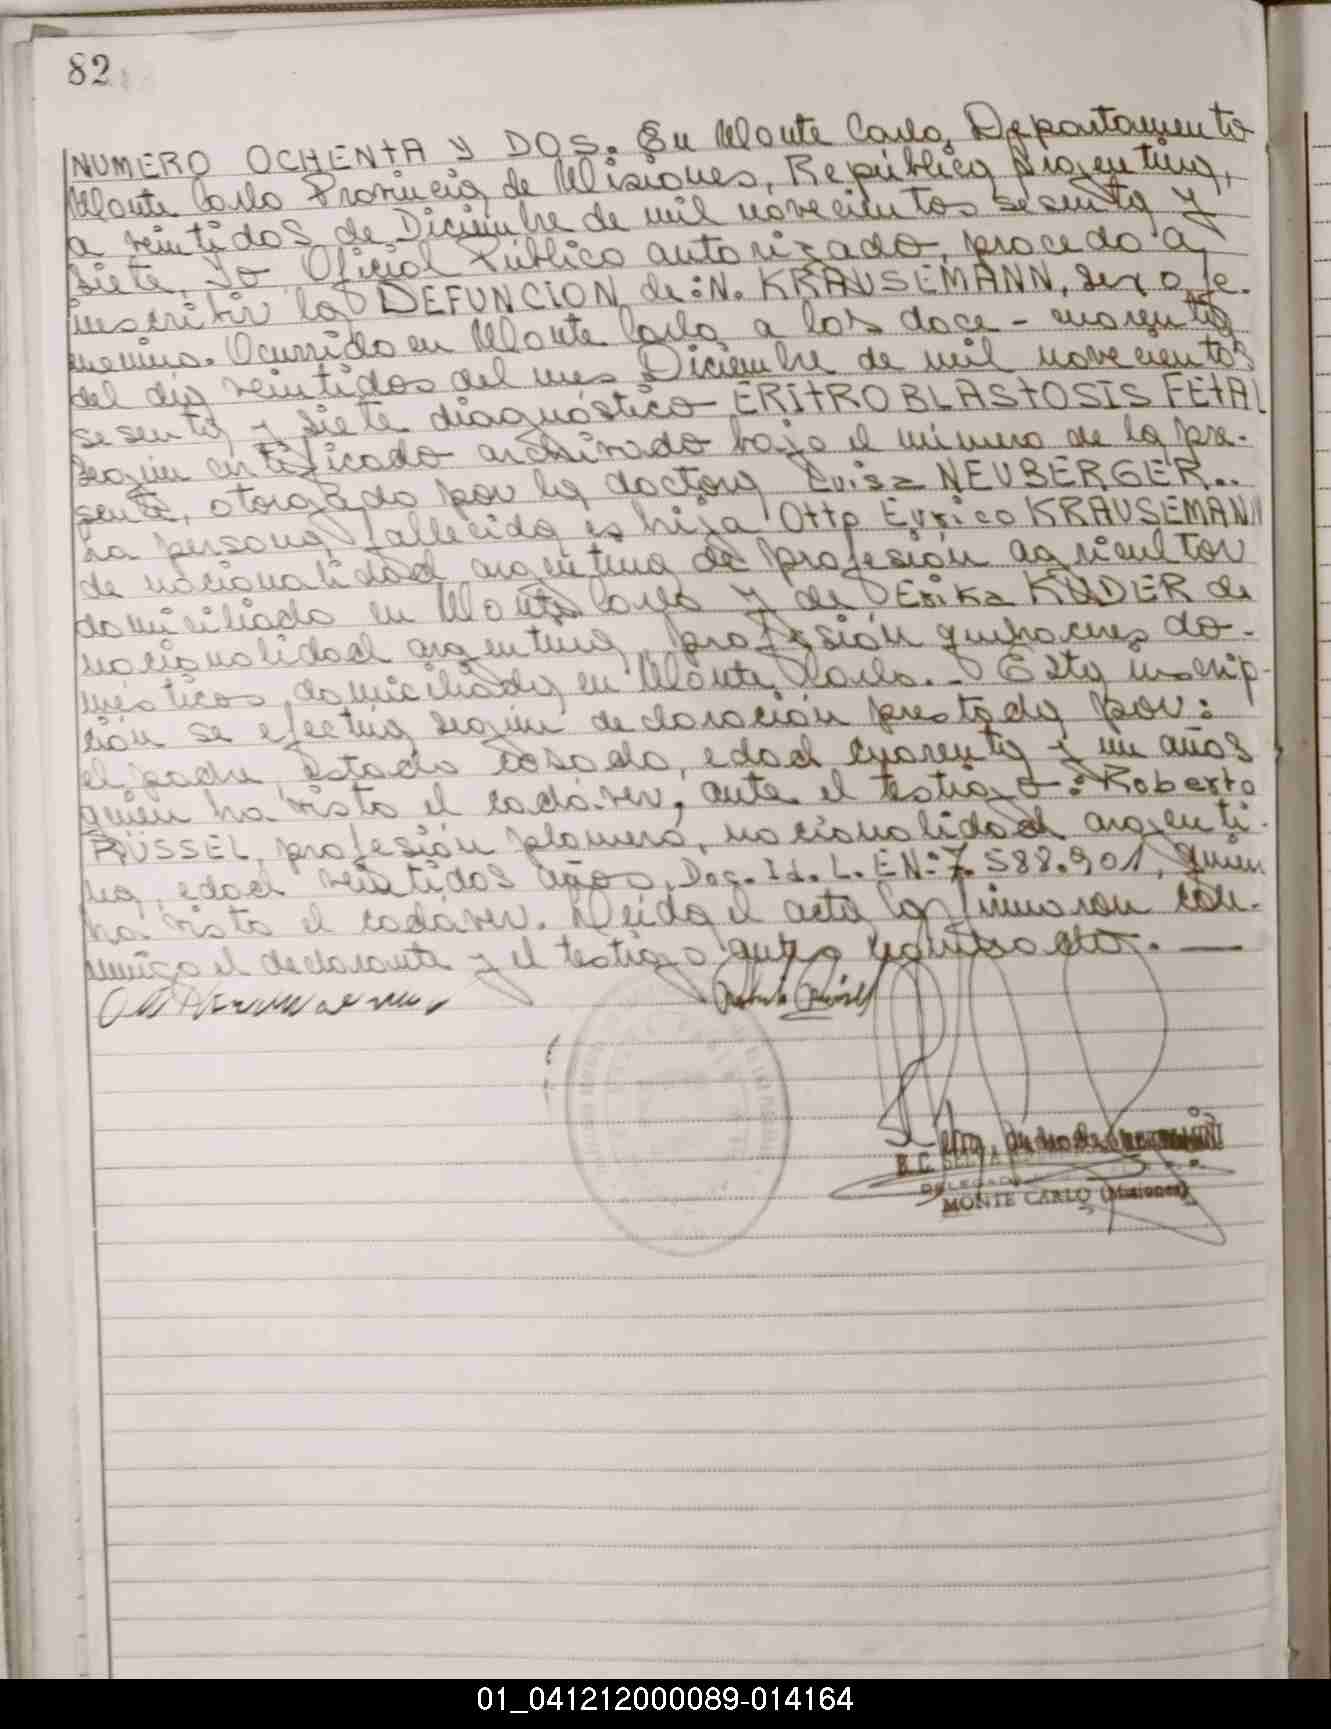 82
NUMERO OCHENTA Y DOS. En Monte Carlo, Departamento
Monte Carlo Provincia de Misiones, República Argentina,
a veintidos de Diciembre de mil novecientos sesenta y
siete, Yo Oficial Público autorizado, procedo a
inscribir la DEFUNCION de: N. KRAUSEMANN, sexo fe-
menino. Ocurrida en Monte Carlo a las doce - cuarenta
del dia veintidos del mes Diciembre de mil novecientos
sesenta y siete diagnóstico ERITROBLASTOSIS FETAL
según certificado archivado bajo el número de la pre-
sente, otorgado por la doctora Luisa NEUBERGER..
La persona fallecida es hija Otto Eurico KRAUSEMANN
de nacionalidad argentina de profesión agricultor
domiciliado en Monte Carlo y de Erika KUDER de
nacionalidad argentina, profesión quehaceres do-
mésticos, domiciliada en Monte Carlo.. - Esta inscrip-
ción se efectúa según declaración prestada por:
el padre, Estado casado, edad cuarenta y un años
quien ha visto el cadáver, ante el testigo: Roberto
RÜSSEL, profesión plomero, nacionalidad argenti-
na, edad veintidos años, Doc. Id. L. E N: 7.588.901, quien
ha visto el cadáver. Leída el acta la firmaron con-
migo el declarante y el testigo
R.C.
DELEGADO
MONTE CARLO (Misiones)
01_041212000089-014164